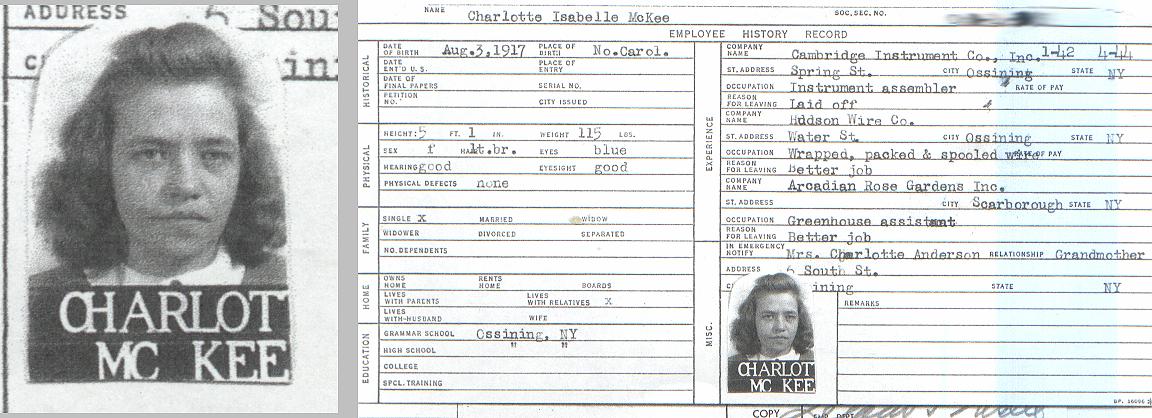 ADDRESS 6 Sou
CHARLOT
MC KEE
NAME Charlotte Isabelle McKee SOC. SEC. NO.
EMPLOYEE HISTORY RECORD
HISTORICAL
DATE OF BIRTH Aug.3,1917 PLACE OF BIRTH No.Carol.
DATE ENT'D U.S. PLACE OF ENTRY
DATE OF FINAL PAPERS SERIAL NO.
PETITION NO. CITY ISSUED
PHYSICAL
HEIGHT: 5 FT. 1 IN. WEIGHT 115 LBS.
SEX f lt.br. EYES blue
HEARING good EYESIGHT good
PHYSICAL DEFECTS none
FAMILY
SINGLE X MARRIED WIDOW
WIDOWER DIVORCED SEPARATED
NO. DEPENDENTS
HOME
OWNS HOME RENTS HOME BOARDS
LIVES WITH PARENTS LIVES WITH RELATIVES X
LIVES WITH-HUSBAND WIFE
EDUCATION
GRAMMAR SCHOOL Ossining, NY
HIGH SCHOOL " "
COLLEGE
SPCL. TRAINING
EXPERIENCE
COMPANY NAME Cambridge Instrument Co., Inc. 1-42 4-44
ST. ADDRESS Spring St. CITY Ossining STATE NY
OCCUPATION Instrument assembler RATE OF PAY
REASON FOR LEAVING Laid off
COMPANY NAME Hudson Wire Co.
ST. ADDRESS Water St. CITY Ossining STATE NY
OCCUPATION Wrapped, packed & spooled wire RATE OF PAY
REASON FOR LEAVING Better job
COMPANY NAME Arcadian Rose Gardens Inc.
ST. ADDRESS CITY Scarborough STATE NY
OCCUPATION Greenhouse assistant
REASON FOR LEAVING Better job
MISC.
IN EMERGENCY NOTIFY Mrs. Charlotte Anderson RELATIONSHIP Grandmother
ADDRESS 6 South St.
ining STATE NY
REMARKS
CHARLOT
MC KEE
COPY